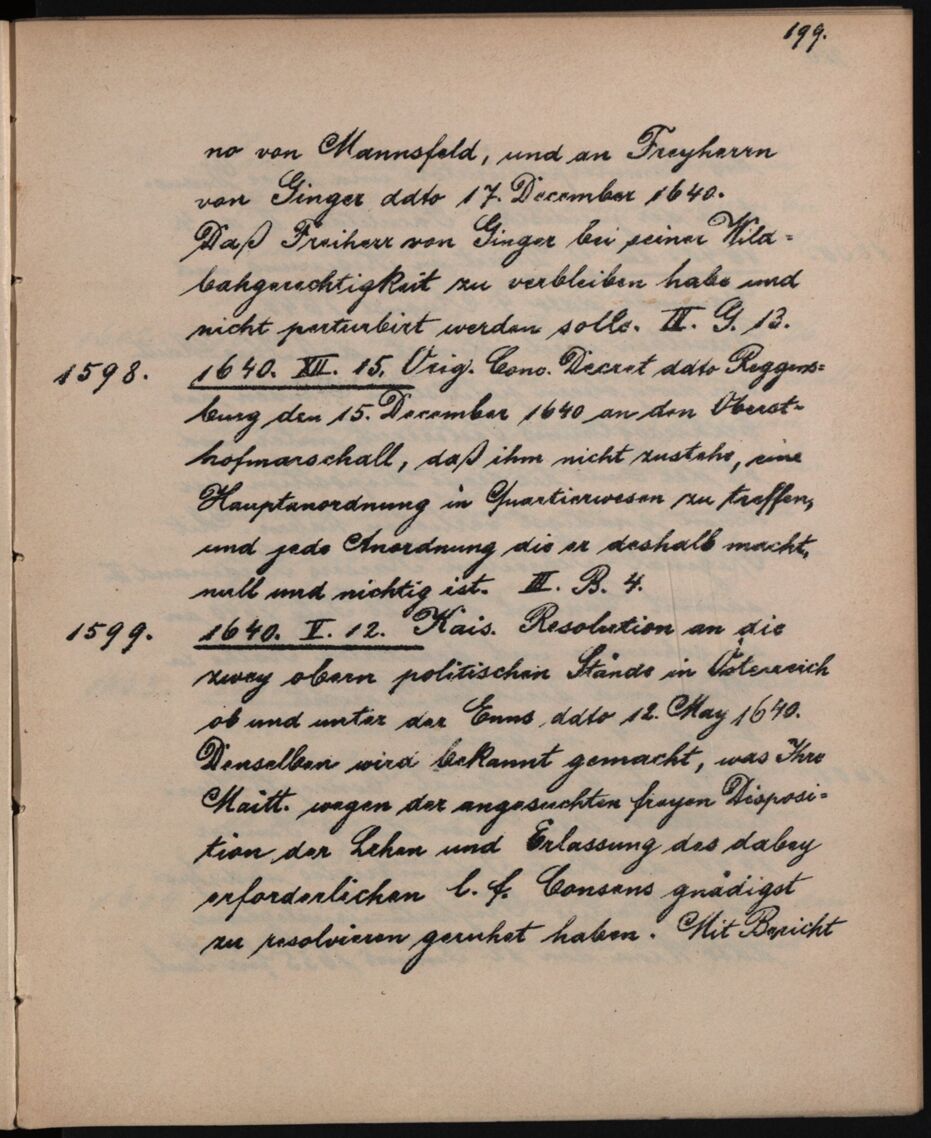 199.
no von Mannsfeld, und an Freyherrn
von Ginger ddto 17. December 1640.
Daß Freiherr von Ginger bei seiner Wild=
bahgerechtigkeit zu verbleiben habe und
nicht perturbirt werden solle. II. G. 13.
1598. 1640. XII. 15. Orig. Conc. Decret ddto Reggens=
burg den 15. December 1640 an den Oberst-
hofmarschall, daß ihm nicht zustehe, eine
Hauptanordnung in Quartierwesen zu treffen,
und jede Anordnung die er deshalb macht,
null und nichtig ist. III. B. 4.
1599. 1640. V. 12. Kais. Resolution an die
zwey obern politischen Stände in Österreich
ob und unter der Enns ddto 12. May 1640.
Denselben wird bekannt gemacht, was Ihre
Maitt. wegen der angesuchten freyen Disposi=
tion der Lehen und Erlassung des dabey
erforderlichen l. f. Consens gnädigst
zu resolvieren geruhet haben. Mit Bericht